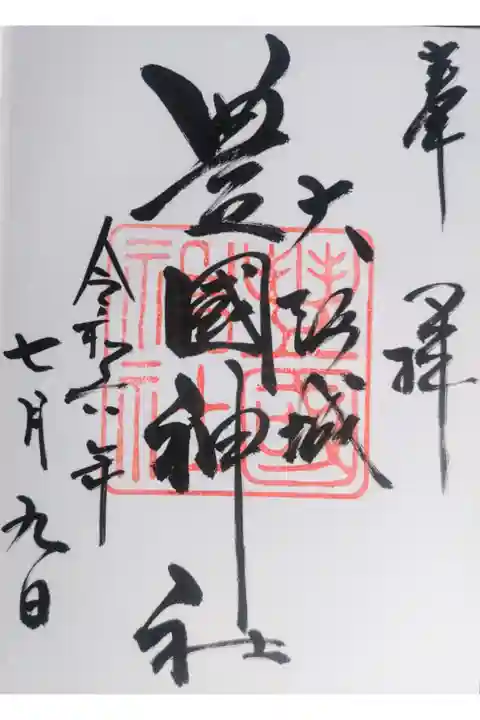 奉拝
大阪城
豊國神社
令和六年
七月九日
豊國
神社